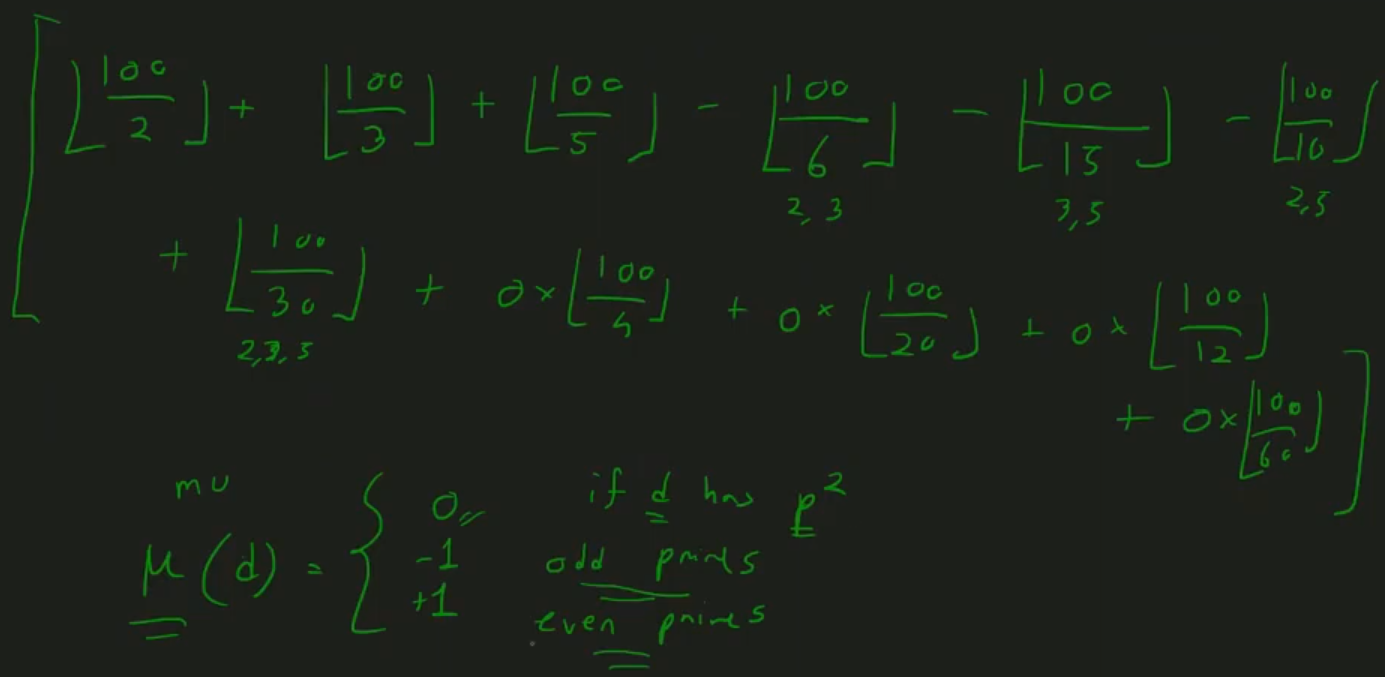 [ ⌊100/2⌋ + ⌊100/3⌋ + ⌊100/5⌋ - ⌊100/6⌋ - ⌊100/15⌋ - ⌊100/10⌋
2, 3 3,5 2,5
+ ⌊100/30⌋ + 0×⌊100/4⌋ + 0×⌊100/20⌋ + 0×⌊100/12⌋
2,3,5
+ 0×⌊100/60⌋ ]
mu
μ(d) = { 0 if d has p²
-1 odd primes
+1 even primes